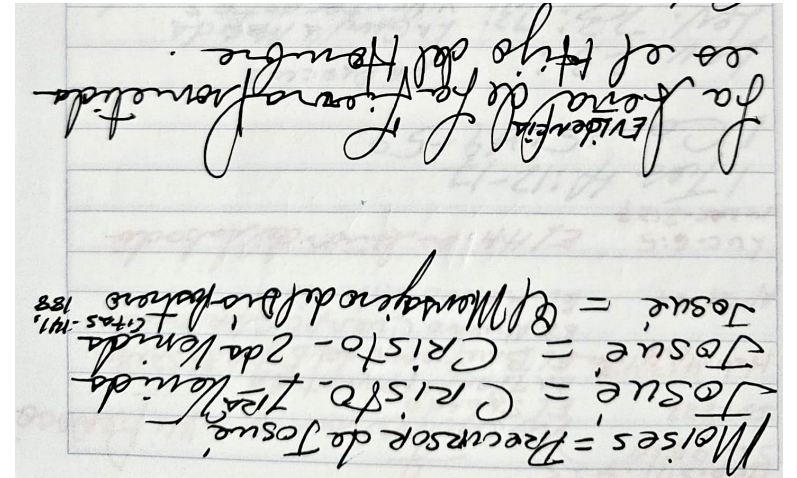 Moises = Precursor de Josué
Josué = CRisto - 1RA Venida
Josué = CRisto - 2da Venida
Josué = El Mensajero del Día Postrero Citas - 141, 188
La Tierra Prometida
es el Hijo del Hombre.